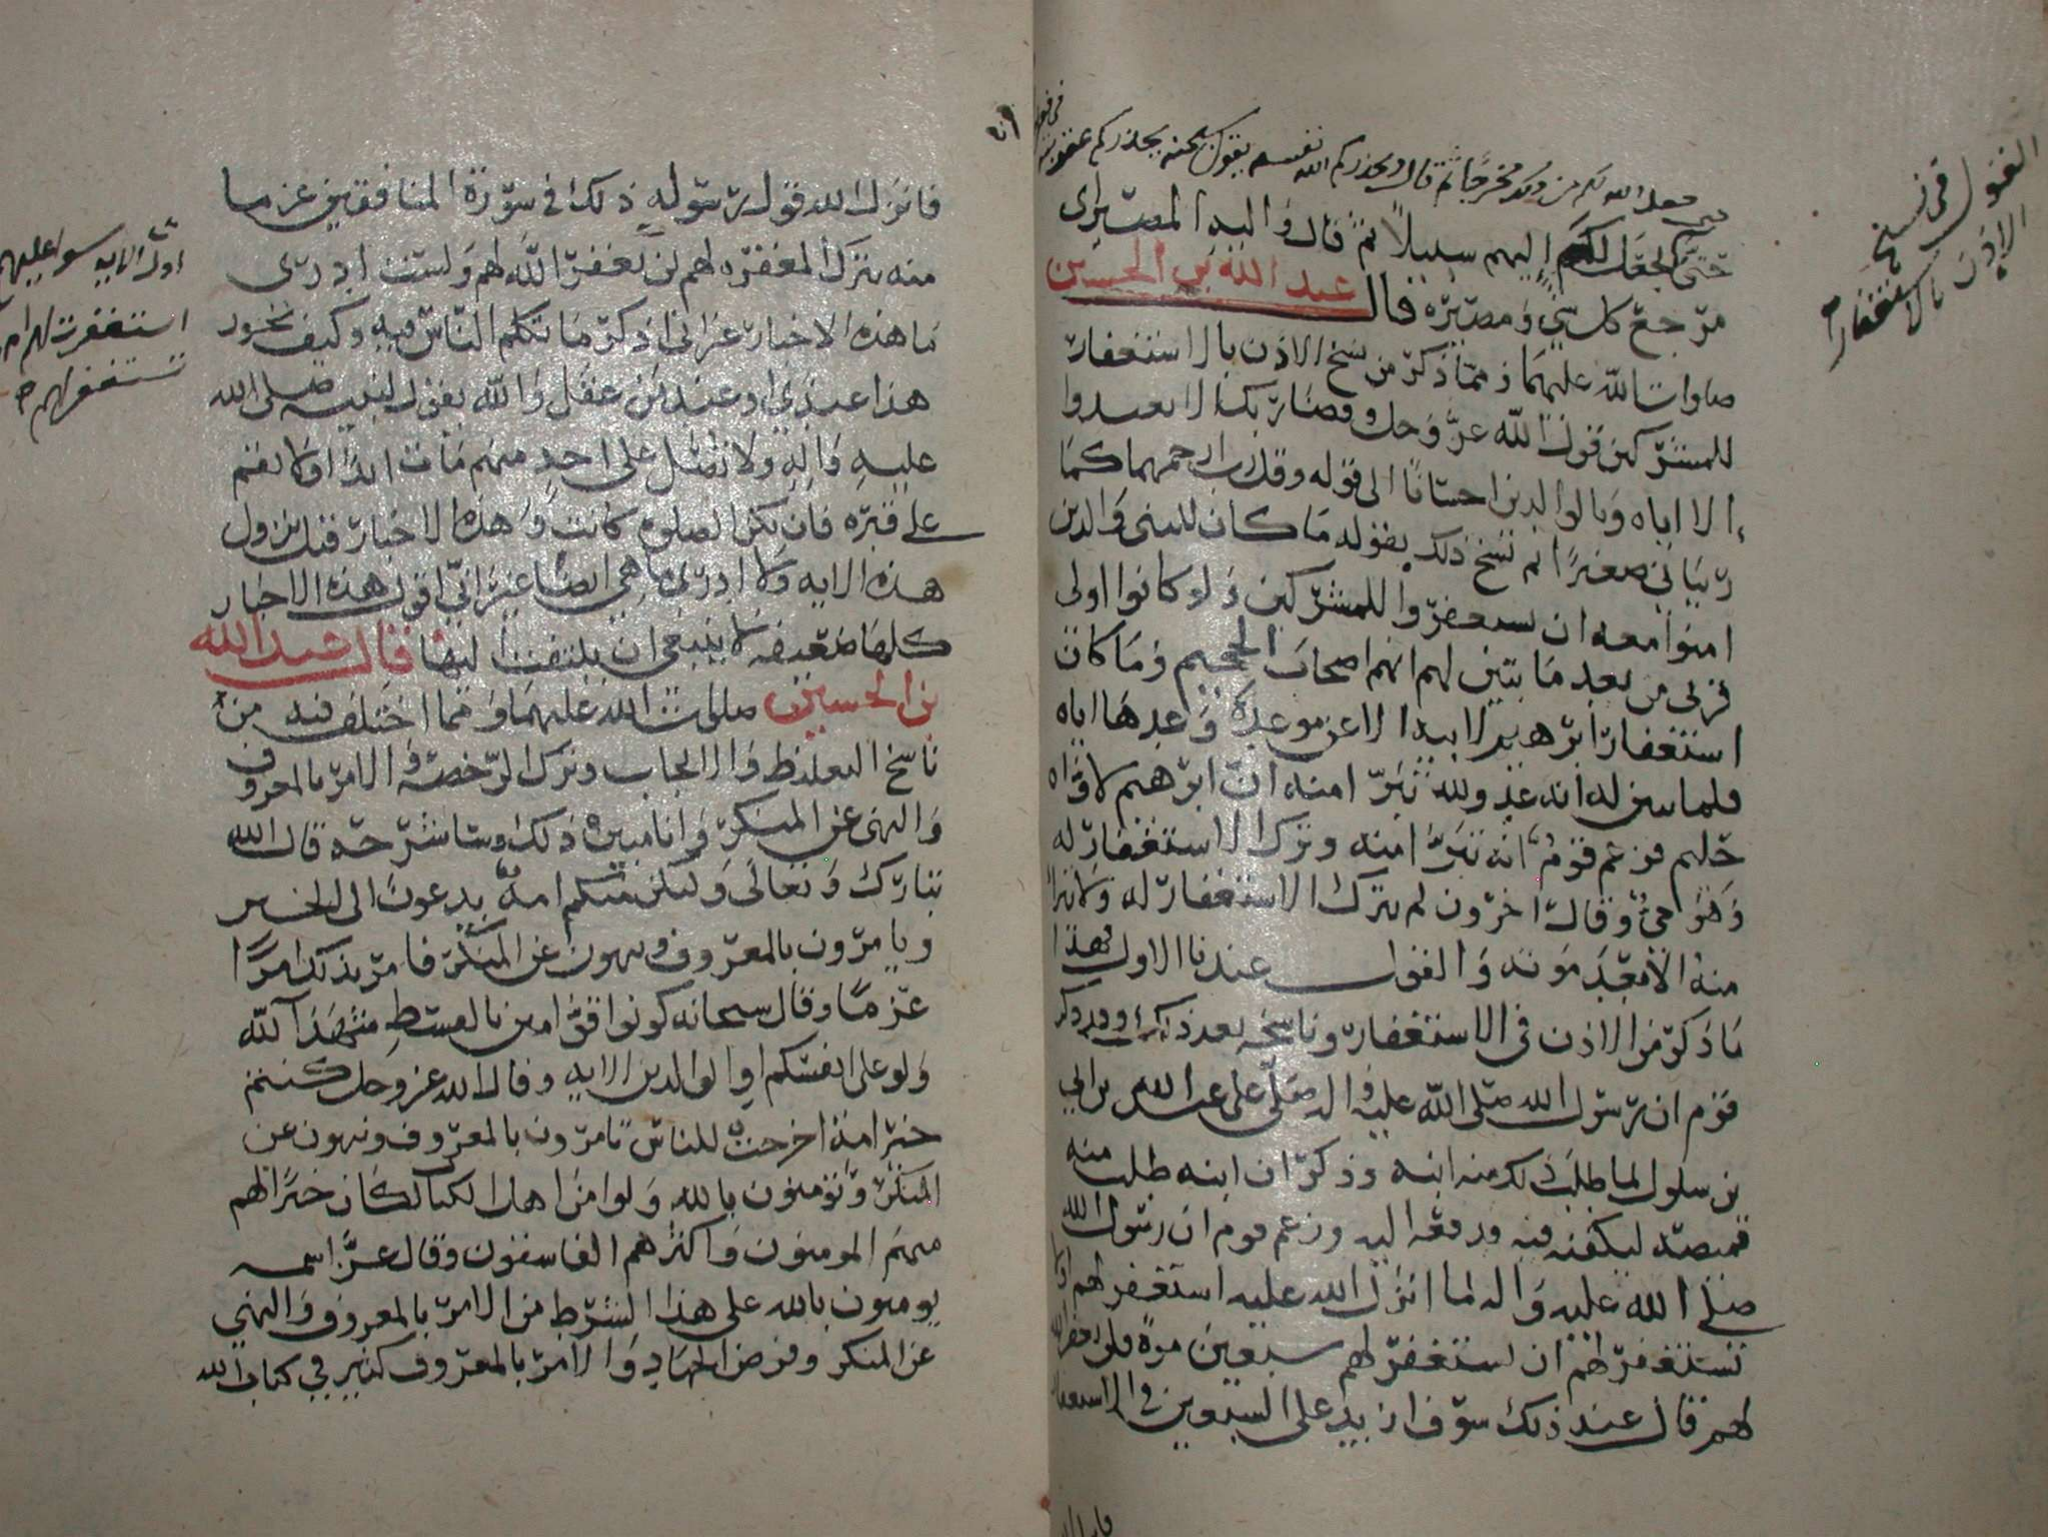 حتى يجعل الله لكم من ذلك مخرجا ثم قال ويحذركم الله نفسه يقول سبحنه يحذركم عقوبته
حتى يجعل لكم إليهم سبيلاً ثم قال وَاليه المصير اي
مرجع كل شي وَمصيره قال عبد الله بن الحسين
صلوات الله عليهما ومما ذكر من نسخ الاذن بالاستغفار
للمشركين قول الله عز وجل وقضا ربك الا تعبدوا
الا اياه وَبالوالدين احسانا الى قوله وقل رب ارحمهما كما
ربياني صغيرًا ثم نسخ ذلك بقوله مَا كان للنبي وَالذين
امنوا معه ان يستغفروا للمشركين وَلو كانوا اولى
قربى من بعد مَا تبين لهم انهم اصحاب الجحيم وَمَا كان
استغفار ابرهيم لابيه الا عن موعدة وَعدها اياه
فلما تبين له انه عدو لله تبرّا منه ان ابرهيم لاوّاه
حليم فزعم قومٌ انه تبرّا منه وترك الاستغفار له
وَهو حيٌ وقال اخرون لم يترك الاستغفار له وَلا تبرا
منه الا بعد مَوته وَالقول عندنا الاول فهذا
مَا ذكر من الاذن في الاستغفار وناسخه بعد ذلك وقد ذكر
قوم ان رسول الله صلى الله عليه وَاله صَلّى على عبد الله بن ابي
بن سلول لما طلب ذلك منه ابنه وذكر ان ابنه طلب منه
قميصه ليكفنه فيه ودفعه اليه وزعم قوم ان رسول الله
صلى الله عليه وَاله لما انزل الله عليه استغفر لهم او لا
تستغفر لهم ان تستغفر لهم سبعين مرة فلن يغفر الله
لهم قال عند ذلك سوف ازيد على السبعين في الاستغفار
القول في نسخ
الاذن بالاستغفار
فانزل الله قول رسوله ذلك في سورة المنافقين عن ما
منه بترك المغفره لهم لن يغفر الله لهم وَلست ادري
مَا هذه الاخبار غير اني اذكر مَا تكلم الناس فيه وكيف يجوز
هذا عندي او عند من عقل وَالله يقول لنبيه صلى الله
عليه وَاله وَلا تصَل على احد منهم مَات ابدًا وَلا تقم
على قبره فان تكن الصلوه كانت وَهذه الاخبار قبل نزول
هذه الايه وَلا ادري مَا هي ايضًا غير اني اقول هذه الاخبار
كلها ضعيفه لا ينبغي ان يلتفت اليها قال عبد الله
بن الحسين صلوات الله عليهما وَمما اختلف فيه من
ناسخ التغليظ وَالايجاب وترك الرخصة وَالامر بالمعروف
وَالنهي عن المنكر وَانا مبين ذلك وشارحه قال الله
تبارك وَتعالى وَلتكن منكم امة يدعون الى الخير
ويامرون بالمعروف وينهون عن المنكر فامر بذلك امرًا
عزمًا وقال سبحانه كونوا قوامين بالقسط شهدآ لله
وَلو على انفسكم اوِ الوالدين الايه وقال الله عز وجل كنتم
خير امة اخرجت للناس تامرون بالمعروف وتنهون عن
المنكر وَتؤمنون بالله وَلو امن اهل الكتاب لكان خيرًا لهم
منهم المومنون وَاكثرهم الفاسقون وقال عزّ اسمه
يومنون بالله على هذا الشرط من الامر بالمعروف وَالنهي
عن المنكر وفرض الجهاد وَالامر بالمعروف كثير في كتاب الله
اول الايه سوا عليهم
استغفرت لهم ام لم
تستغفر لهم